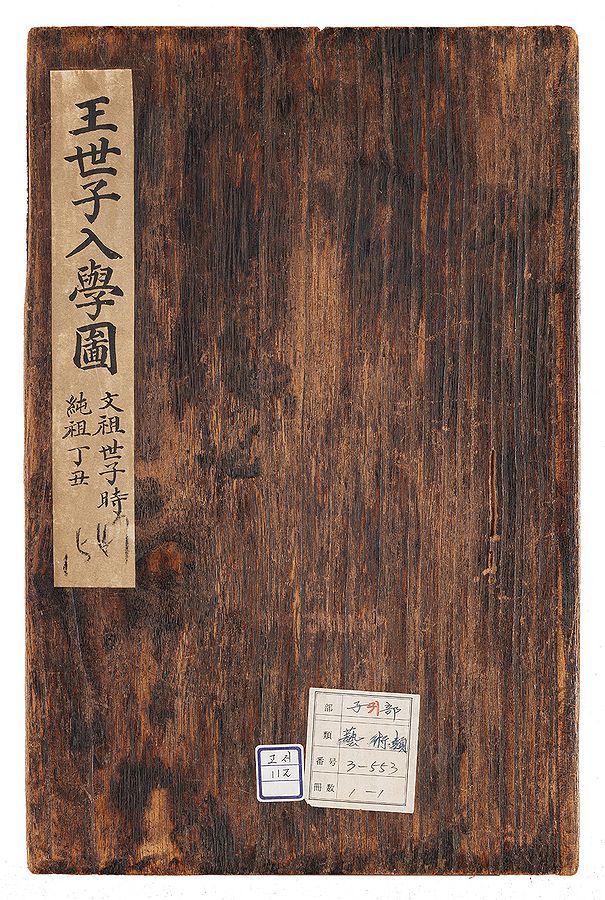 王世子入學圖
文祖世子時
純祖丁丑
고서
112
部 子部
類 藝術類
番号 3-553
冊数 1-1